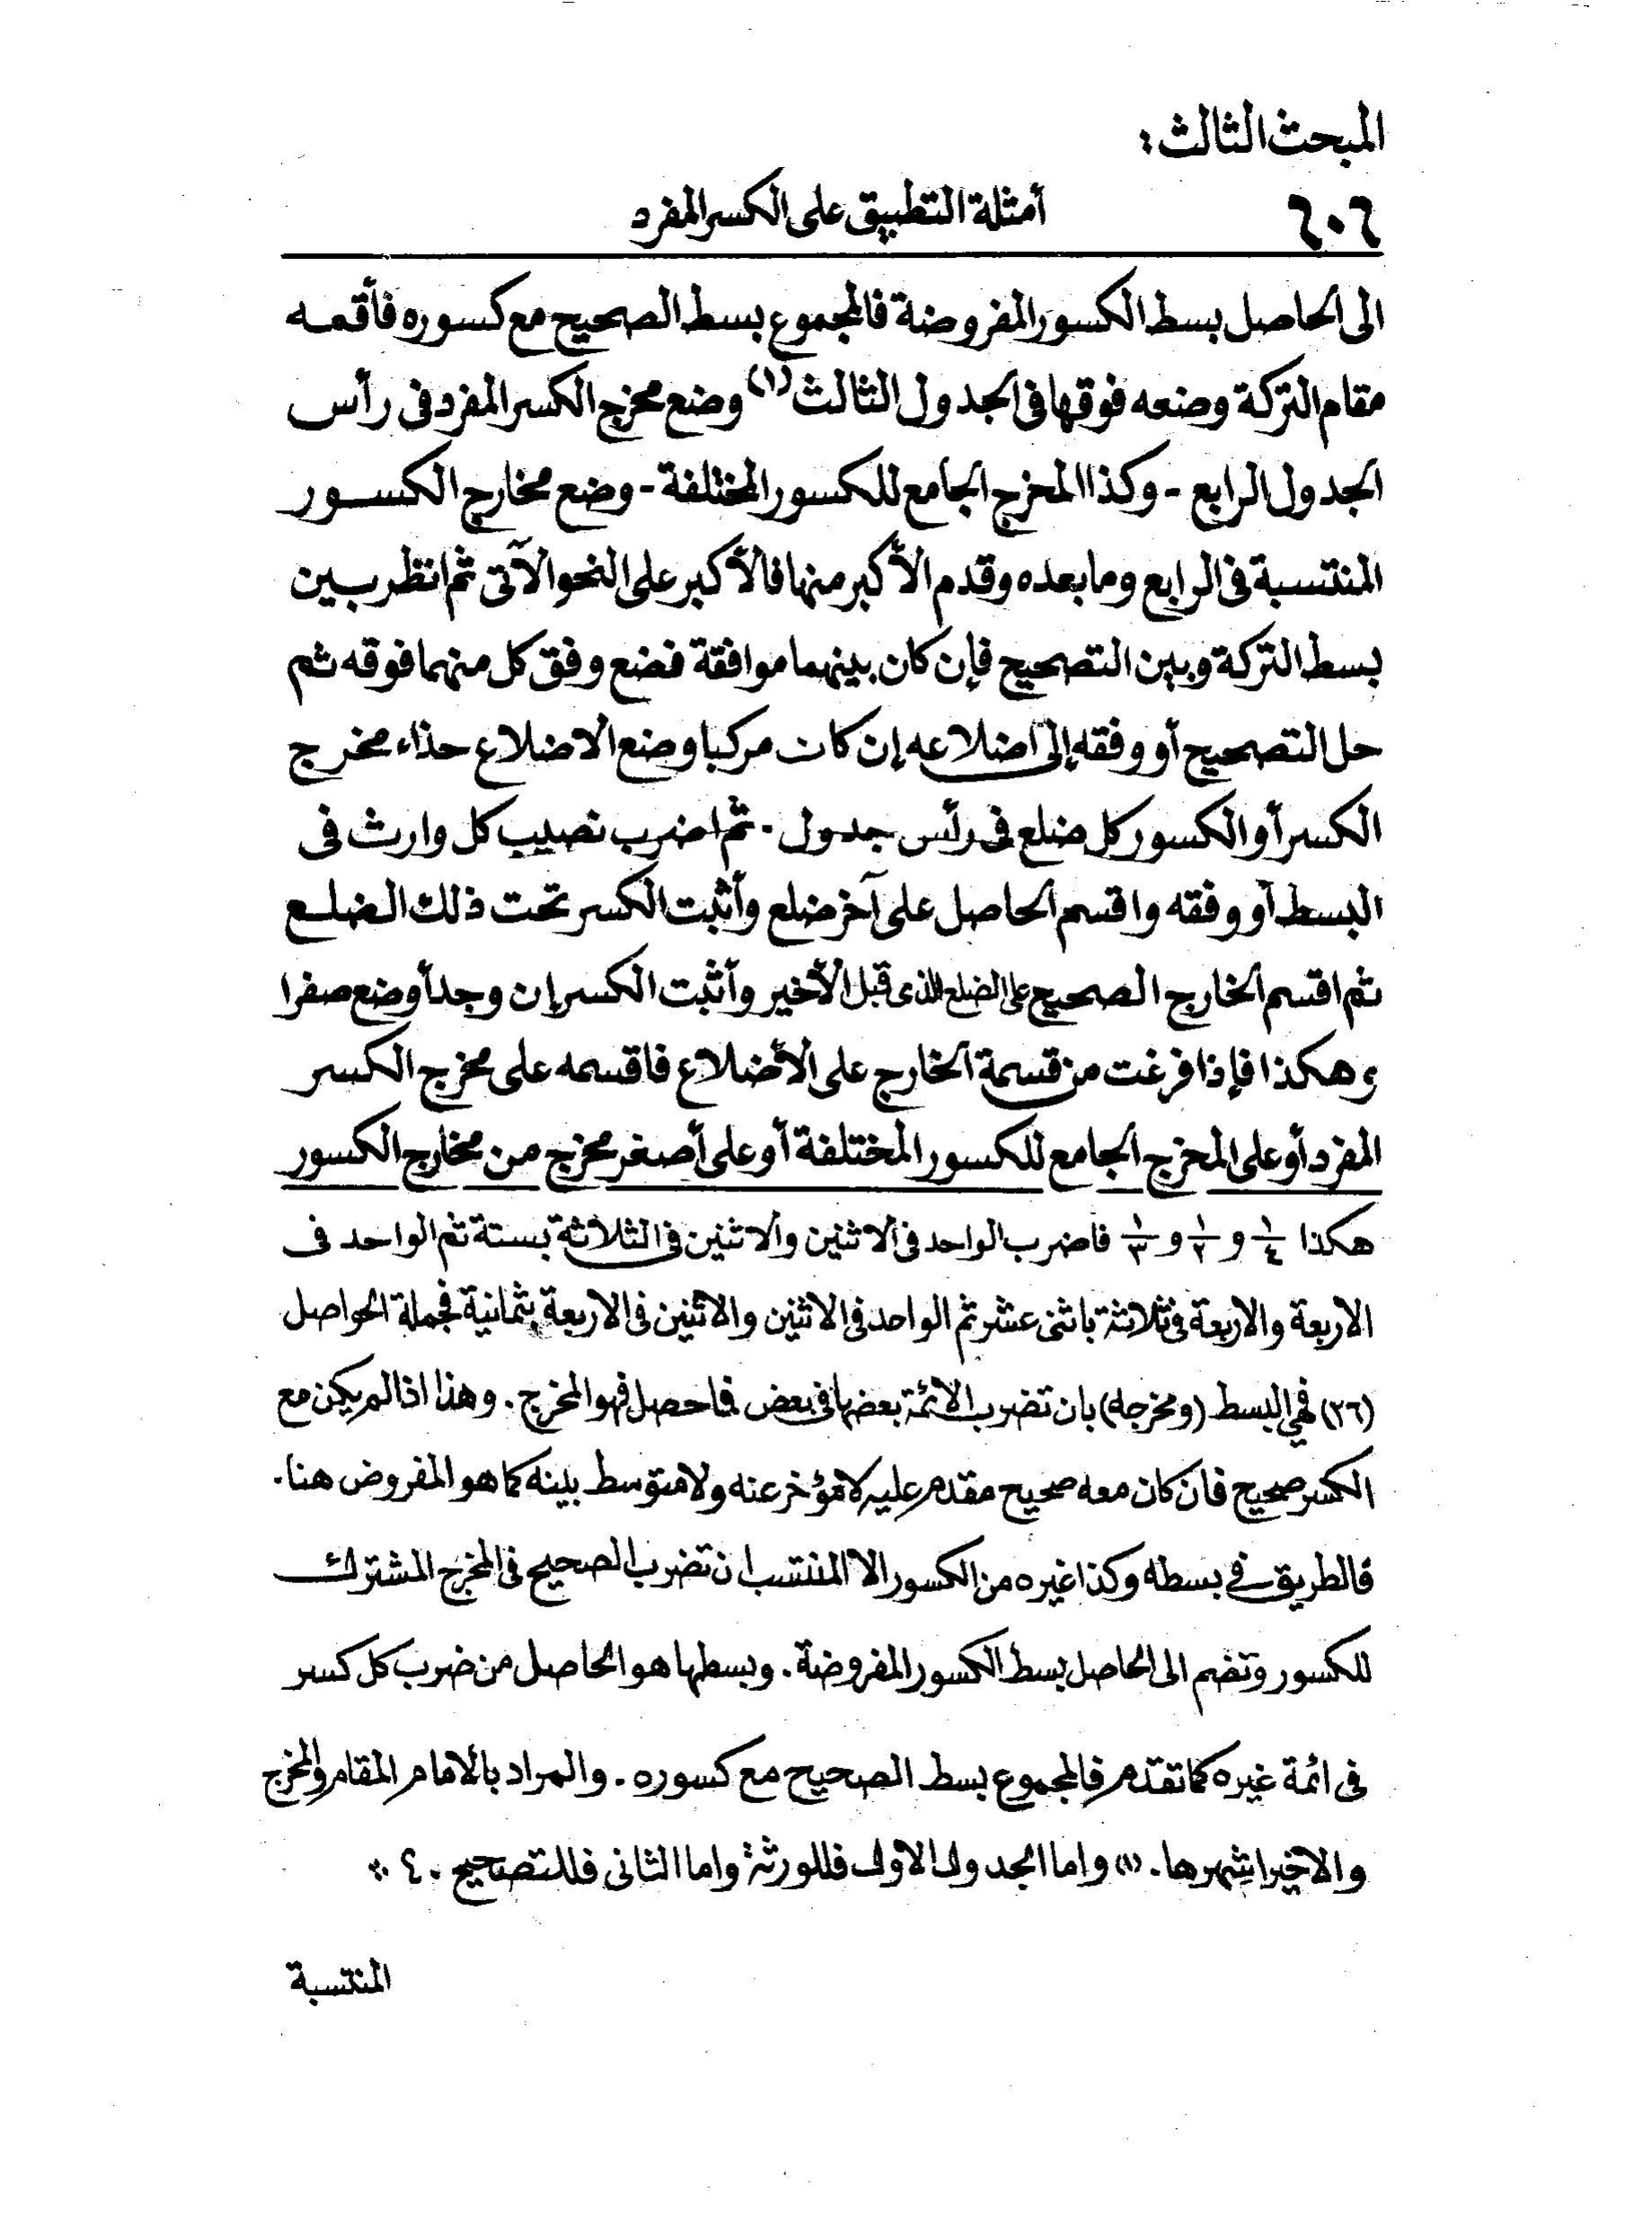 المبحث الثالث :
٦٠٦ أمثلة التطبيق على الكسر المفرد
الى الحاصل بسط الكسور المفروضة فالمجموع بسط الصحيح مع كسوره فأقمه
مقام التركة وضعه فوقها فى الجدول الثالث (١) وضع مخرج الكسر المفرد فى رأس
الجدول الرابع - وكذا المخرج الجامع للكسور المختلفة - وضع مخارج الكسور
المنتسبة فى الرابع وما بعده وقدم الأكبر منها فالأكبر على النحو الآتى ثم انظر بين
بسط التركة وبين التصحيح فإن كان بينهما موافقة فضع وفق كل منهما فوقه ثم
حل التصحيح أو وفقه إلى اضلاعه إن كان مركبا وضع الاضلاع حذاء مخرج
الكسر أو الكسور كل ضلع فى رأس جدول . ثم اضرب نصيب كل وارث فى
البسط أو وفقه واقسم الحاصل على آخر ضلع وأثبت الكسر تحت ذلك الضلع
ثم اقسم الخارج الصحيح على الضلع الذى قبل الأخير وأثبت الكسر إن وجد أو ضع صفرا
وهكذا فإذا فرغت من قسمة الخارج على الأضلاع فاقسمه على مخرج الكسر
المفرد أو على المخرج الجامع للكسور المختلفة أو على أصغر مخرج من مخارج الكسور
هكذا ١/٤ و ١/٢ و ١/٣ فاضرب الواحد فى الاثنين والاثنين فى الثلاثة بستة ثم الواحد فى
الاربعة والاربعة فى ثلاثة باثنى عشر ثم الواحد فى الاثنين والاثنين فى الاربعة بثمانية فجملة الحواصل
(٢٦) فهى البسط (ومخرجه) بان تضرب الائمة بعضها فى بعض فما حصل فهو المخرج . وهذا اذا لم يكن مع
الكسر صحيح فان كان معه صحيح مقدم عليه لا مؤخر عنه ولا متوسط بينه كما هو المفروض هنا .
فالطريق في بسطه وكذا غيره من الكسور الا المنتسب ان تضرب الصحيح فى المخرج المشترك
للكسور وتضم الى الحاصل بسط الكسور المفروضة . وبسطها هو الحاصل من ضرب كل كسر
فى ائمة غيره كما تقدم فالمجموع بسط الصحيح مع كسوره . والمراد بالامام المقام والمخرج
والاخير اشهرها . (١) واما الجدول الاول فللورثة واما الثانى فللتصحيح . ٤ ٠:
المنتسبة